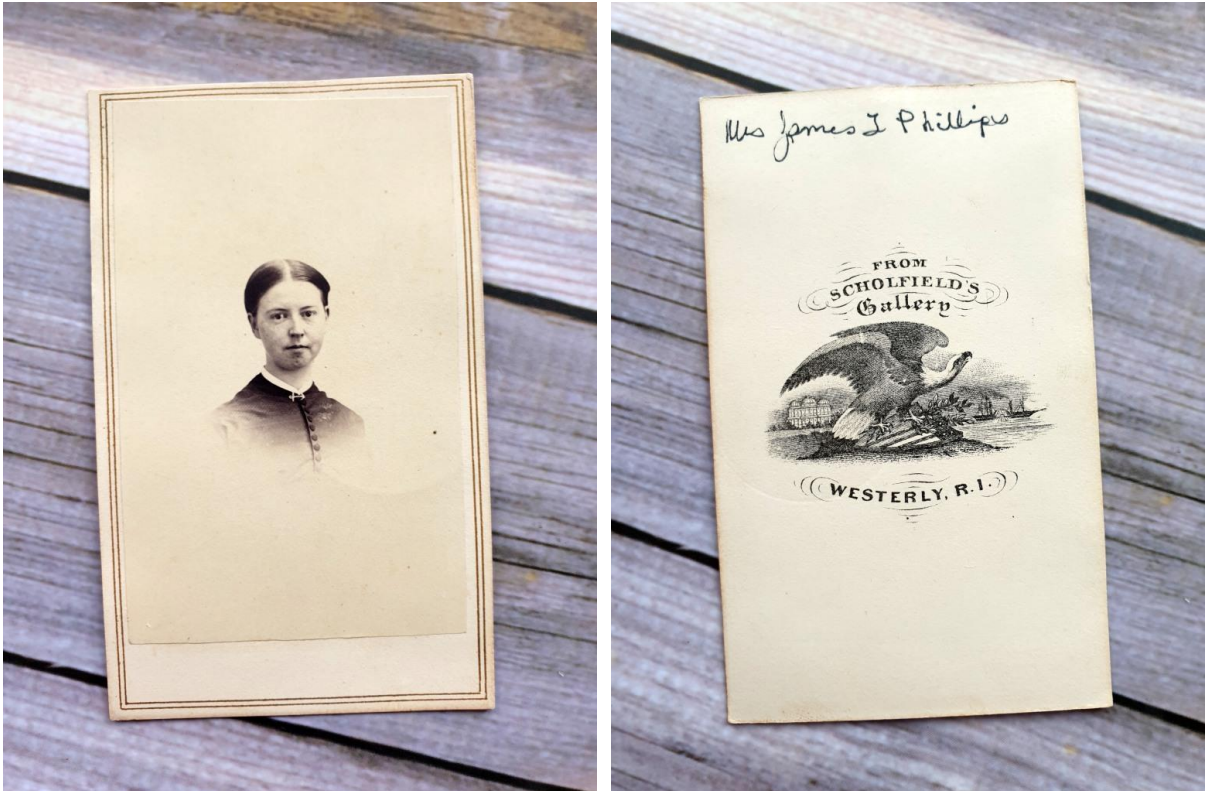 Mrs James L Phillips
FROM
SCHOLFIELD'S
Gallery
WESTERLY, R.I.